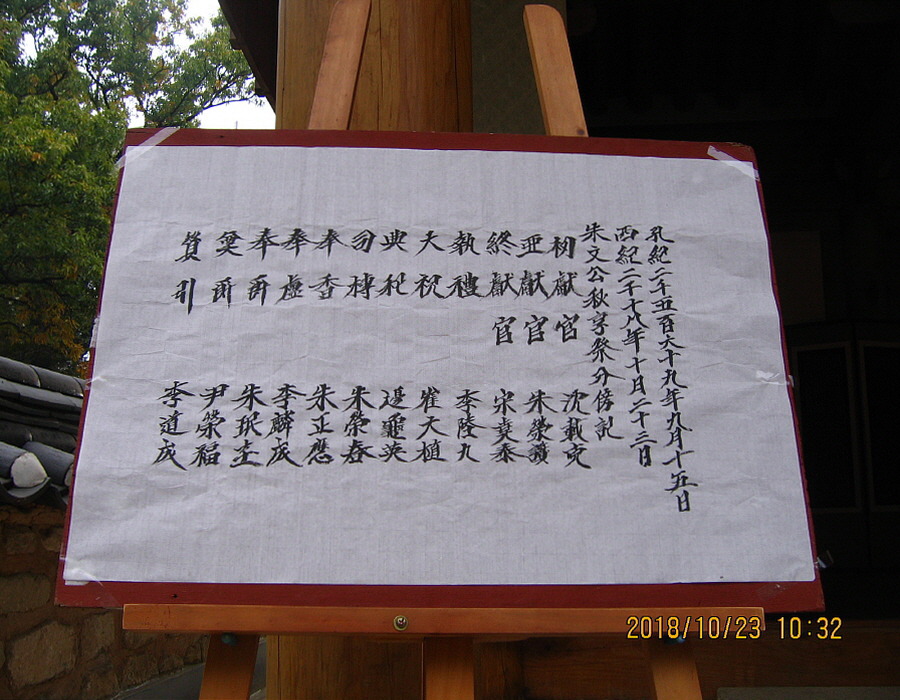 孔紀二千五百六十九年九月十五日
西紀二千十八年十月二十三日
朱文公秋享祭分傍記
初獻官 沈載
亞獻官 朱榮
終獻官 宋堯泰
執禮 李隆九
大祝 崔天植
典礼 邊英
司樽 朱榮春
奉香 朱正應
奉虛 李麟成
奉爵 朱珉圭
奠爵 尹榮福
贊引 李道成
2018/10/23 10:32